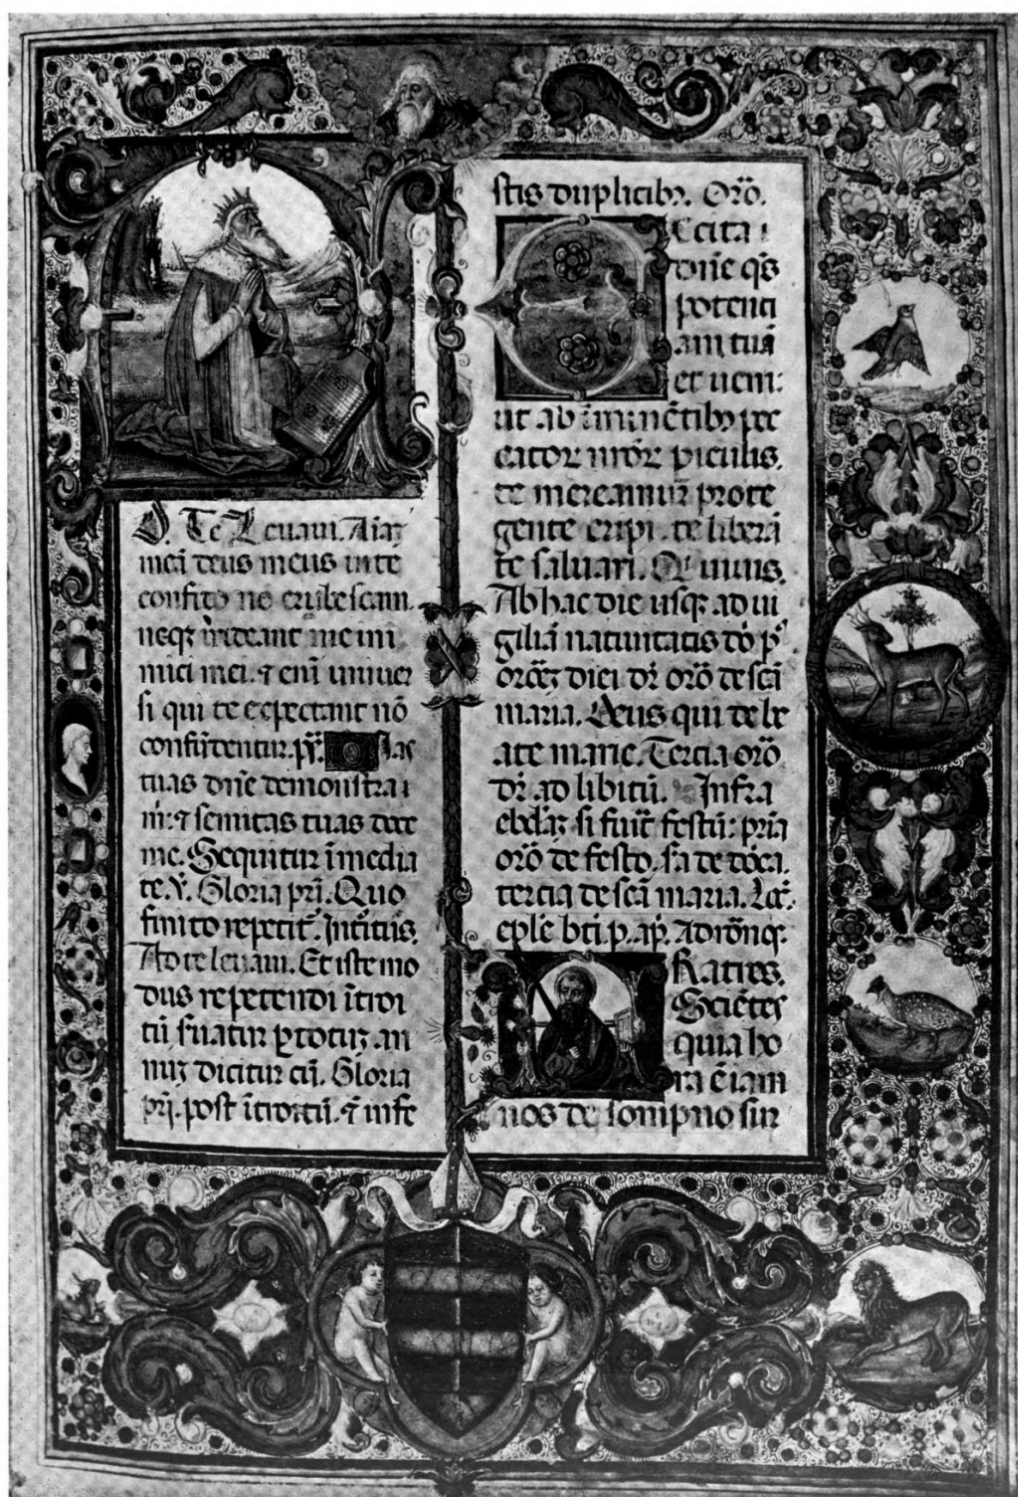 D. Te Levavi. Aīaʒ
meā deus meus in te
confido nō erubescam
neqʒ irrideant me ini
mici mei. ⁊ enī univer
si qui te expectant nō
confūdentur. p̄s. Vias
tuas dn̄e demonstra
m̄: ⁊ semitas tuas doce
me. Sequitur īmedia
te. V̄. Gloria pr̄i. Quo
finito repetit̄. Introitus.
Ad te levavi. Et iste mo
dus repetendi ītroi
tū s̄vatur ꝑ totuʒ an
nuʒ dicitur cū. Gloria
pr̄i. post ītroitū. ⁊ in fe
stis duplicibꝰ. Orō.
Excita
dn̄e qs̄
potenti
am tuā
et veni:
ut ab īminētibꝰ pec
catoꝝ nr̄oꝝ ꝑiculis.
te mereamur prote
gente eripi. te liberā
te salvari. Qui vivis.
Ab hac die usqʒ ad vi
giliā nativitatis dn̄i pꝰ
orōeʒ diei dr̄ orō de scā
maria. Deus qui de be
ate marie. Tercia orō
dr̄ ad libitū. Infra
ebdaʒ si fuerit festū: prīa
orō de festo. scd̄a de dn̄ica.
tercia de scā maria. Lc̄.
eplē bti. p. ap̄. Ad rōnos.
Fratres.
Sciētes
quia ho
ra ē iam
nos de sompno sur